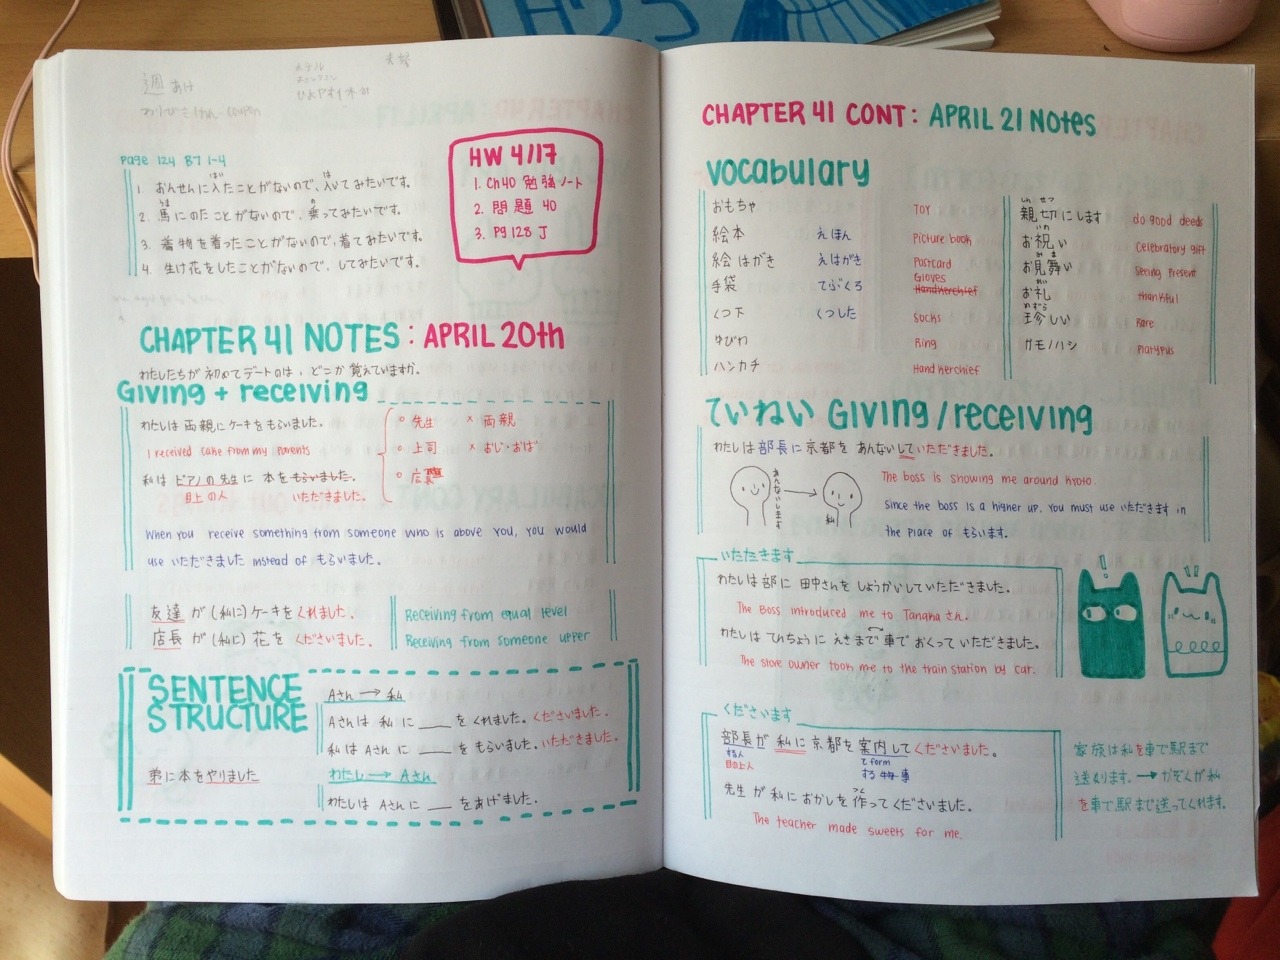 H23
ホテル
週あけ
わりびきけん coupon
page 124 B7 1-4
1. おんせんに入たことがないので、入いてみたいです。
2. 馬にのたことがないので、乗ってみたいです。
3. 着物を着ったことがないので、着てみたいです。
4. 生け花をしたことがないので、してみたいです。
HW 4/17
1. Ch40 勉強ノート
2. 問題 40
3. Pg 128 J
CHAPTER 41 NOTES: APRIL 20th
わたしたちが初めてデートのは、どこか覚えていますか。
Giving + receiving
わたしは両親にケーキをもらいました。
I received cake from my parents
私はピアノの先生に本をもらいました。
目上の人 いただきました。
○ 先生 × 両親
○ 上司 × おじ・おば
○ 店長
When you receive something from someone who is above you, you would
use いただきました instead of もらいました。
友達が(私に)ケーキをくれました。 Receiving from equal level
店長が(私に)花をくださいました。 Receiving from someone upper
SENTENCE
STRUCTURE
弟に本をやりました
Aさん → 私
Aさんは私に ___ をくれました。くださいました。
私はAさんに ___ をもらいました。いただきました。
わたし → Aさん
わたしはAさんに ___ をあげました。
CHAPTER 41 CONT: APRIL 21 Notes
vocabulary
おもちゃ TOY
絵本 えほん Picture book
絵はがき えはがき Postcard
手袋 てぶくろ Gloves Handkerchief
くつ下 くつした Socks
ゆびわ Ring
ハンカチ Handkerchief
親切にします do good deeds
お祝い いわ Celebratory gift
お見舞い みま Seeing Present
お礼 れい thankful
珍しい めずら Rare
カモノハシ Platypus
ていねい Giving/receiving
わたしは部長に京都をあんないしていただきました。
あんないします
私
The boss is showing me around Kyoto.
Since the boss is a higher up, you must use いただきます in
the place of もらいます.
いただきます
わたしは部に田中さんをしょうかいしていただきました。
The Boss introduced me to Tanaka さん.
わたしはてんちょうにえきまで車でおくっていただきました。
The store owner took me to the train station by car.
くださいます
部長が私に京都を案内してくださいました。
する人
目上人
て form
する物・事
先生が私におかしを作ってくださいました。
The teacher made sweets for me.
家族は私を車で駅まで
送ります。→ かぞくが私
を車で駅まで送ってくれます。